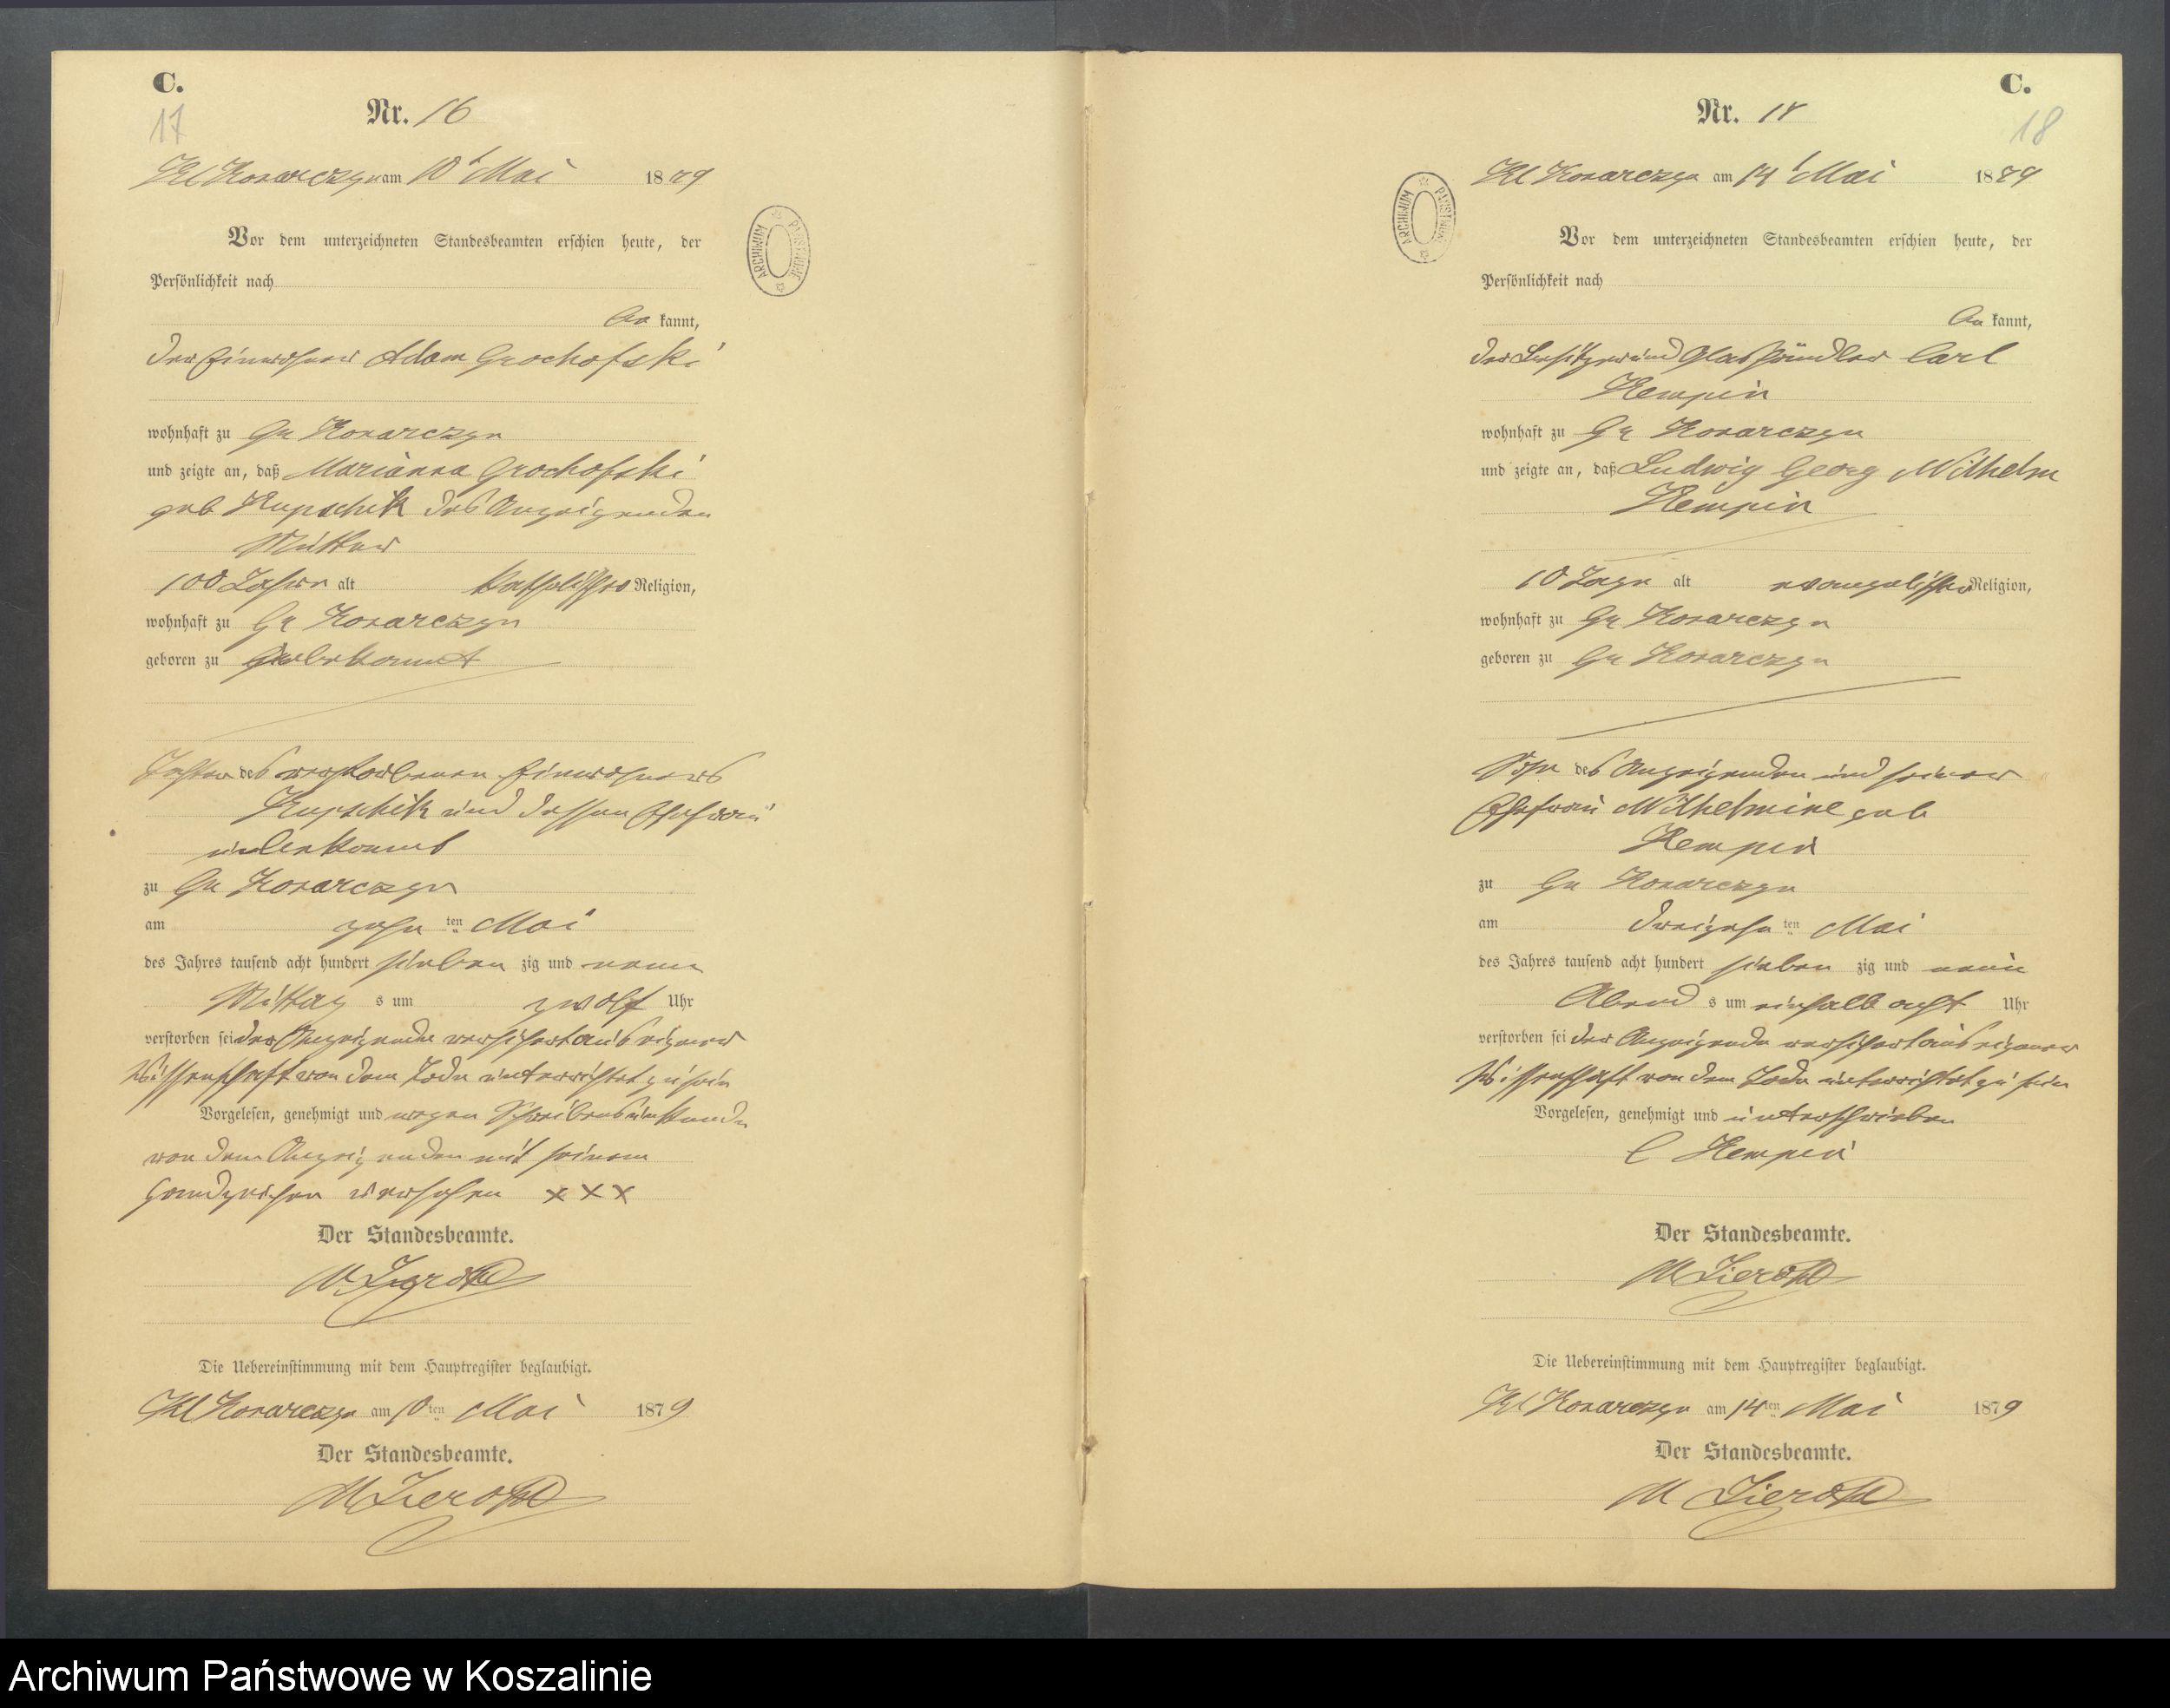 C.
17
Nr. 16
Kl Konarczyn am 10t Mai 1879
ARCHIWUM PAŃSTWOWE
Vor dem unterzeichneten Standesbeamten erschien heute, der
Persönlichkeit nach
be kannt,
der Einwohner Adam Grochofski
wohnhaft zu Gr Konarczyn
und zeigte an, daß Marianna Grochofski
geb Kupschik des Anzeigenden
Mutter
100 Jahre alt katholischer Religion,
wohnhaft zu Gr Konarczyn
geboren zu unbekannt
Tochter des verstorbenen Einwohners
Kupschik und dessen Ehefrau
unbekannt
zu Gr Konarczyn
am zehn ten Mai
des Jahres tausend acht hundert sieben zig und neun
Mittag s um zwölf Uhr
verstorben sei der Anzeigende versichert aus eigener
Wissenschaft von dem Tode unterrichtet zu sein
Vorgelesen, genehmigt und wegen Schreibensunkunde
von dem Anzeigenden mit seinem
Handzeichen versehen XXX
Der Standesbeamte.
Die Uebereinstimmung mit dem Hauptregister beglaubigt.
Kl Konarczyn am 10ten Mai 1879
Der Standesbeamte.
C.
18
Nr. 17
Kl Konarczyn am 14t Mai 1879
ARCHIWUM PAŃSTWOWE
Vor dem unterzeichneten Standesbeamten erschien heute, der
Persönlichkeit nach
be kannt,
der Besitzer und Glashändler Carl
Kempin
wohnhaft zu Gr Konarczyn
und zeigte an, daß Ludwig Georg Wilhelm
Kempin
10 Tage alt evangelischer Religion,
wohnhaft zu Gr Konarczyn
geboren zu Gr Konarczyn
Sohn des Anzeigenden und seiner
Ehefrau Wilhelmine geb
Kempin
zu Gr Konarczyn
am dreizehn ten Mai
des Jahres tausend acht hundert sieben zig und neun
Abend s um einhalb acht Uhr
verstorben sei der Anzeigende versichert aus eigener
Wissenschaft von dem Tode unterrichtet zu sein
Vorgelesen, genehmigt und unterschrieben
C Kempin
Der Standesbeamte.
Die Uebereinstimmung mit dem Hauptregister beglaubigt.
Kl Konarczyn am 14ten Mai 1879
Der Standesbeamte.
Archiwum Państwowe w Koszalinie